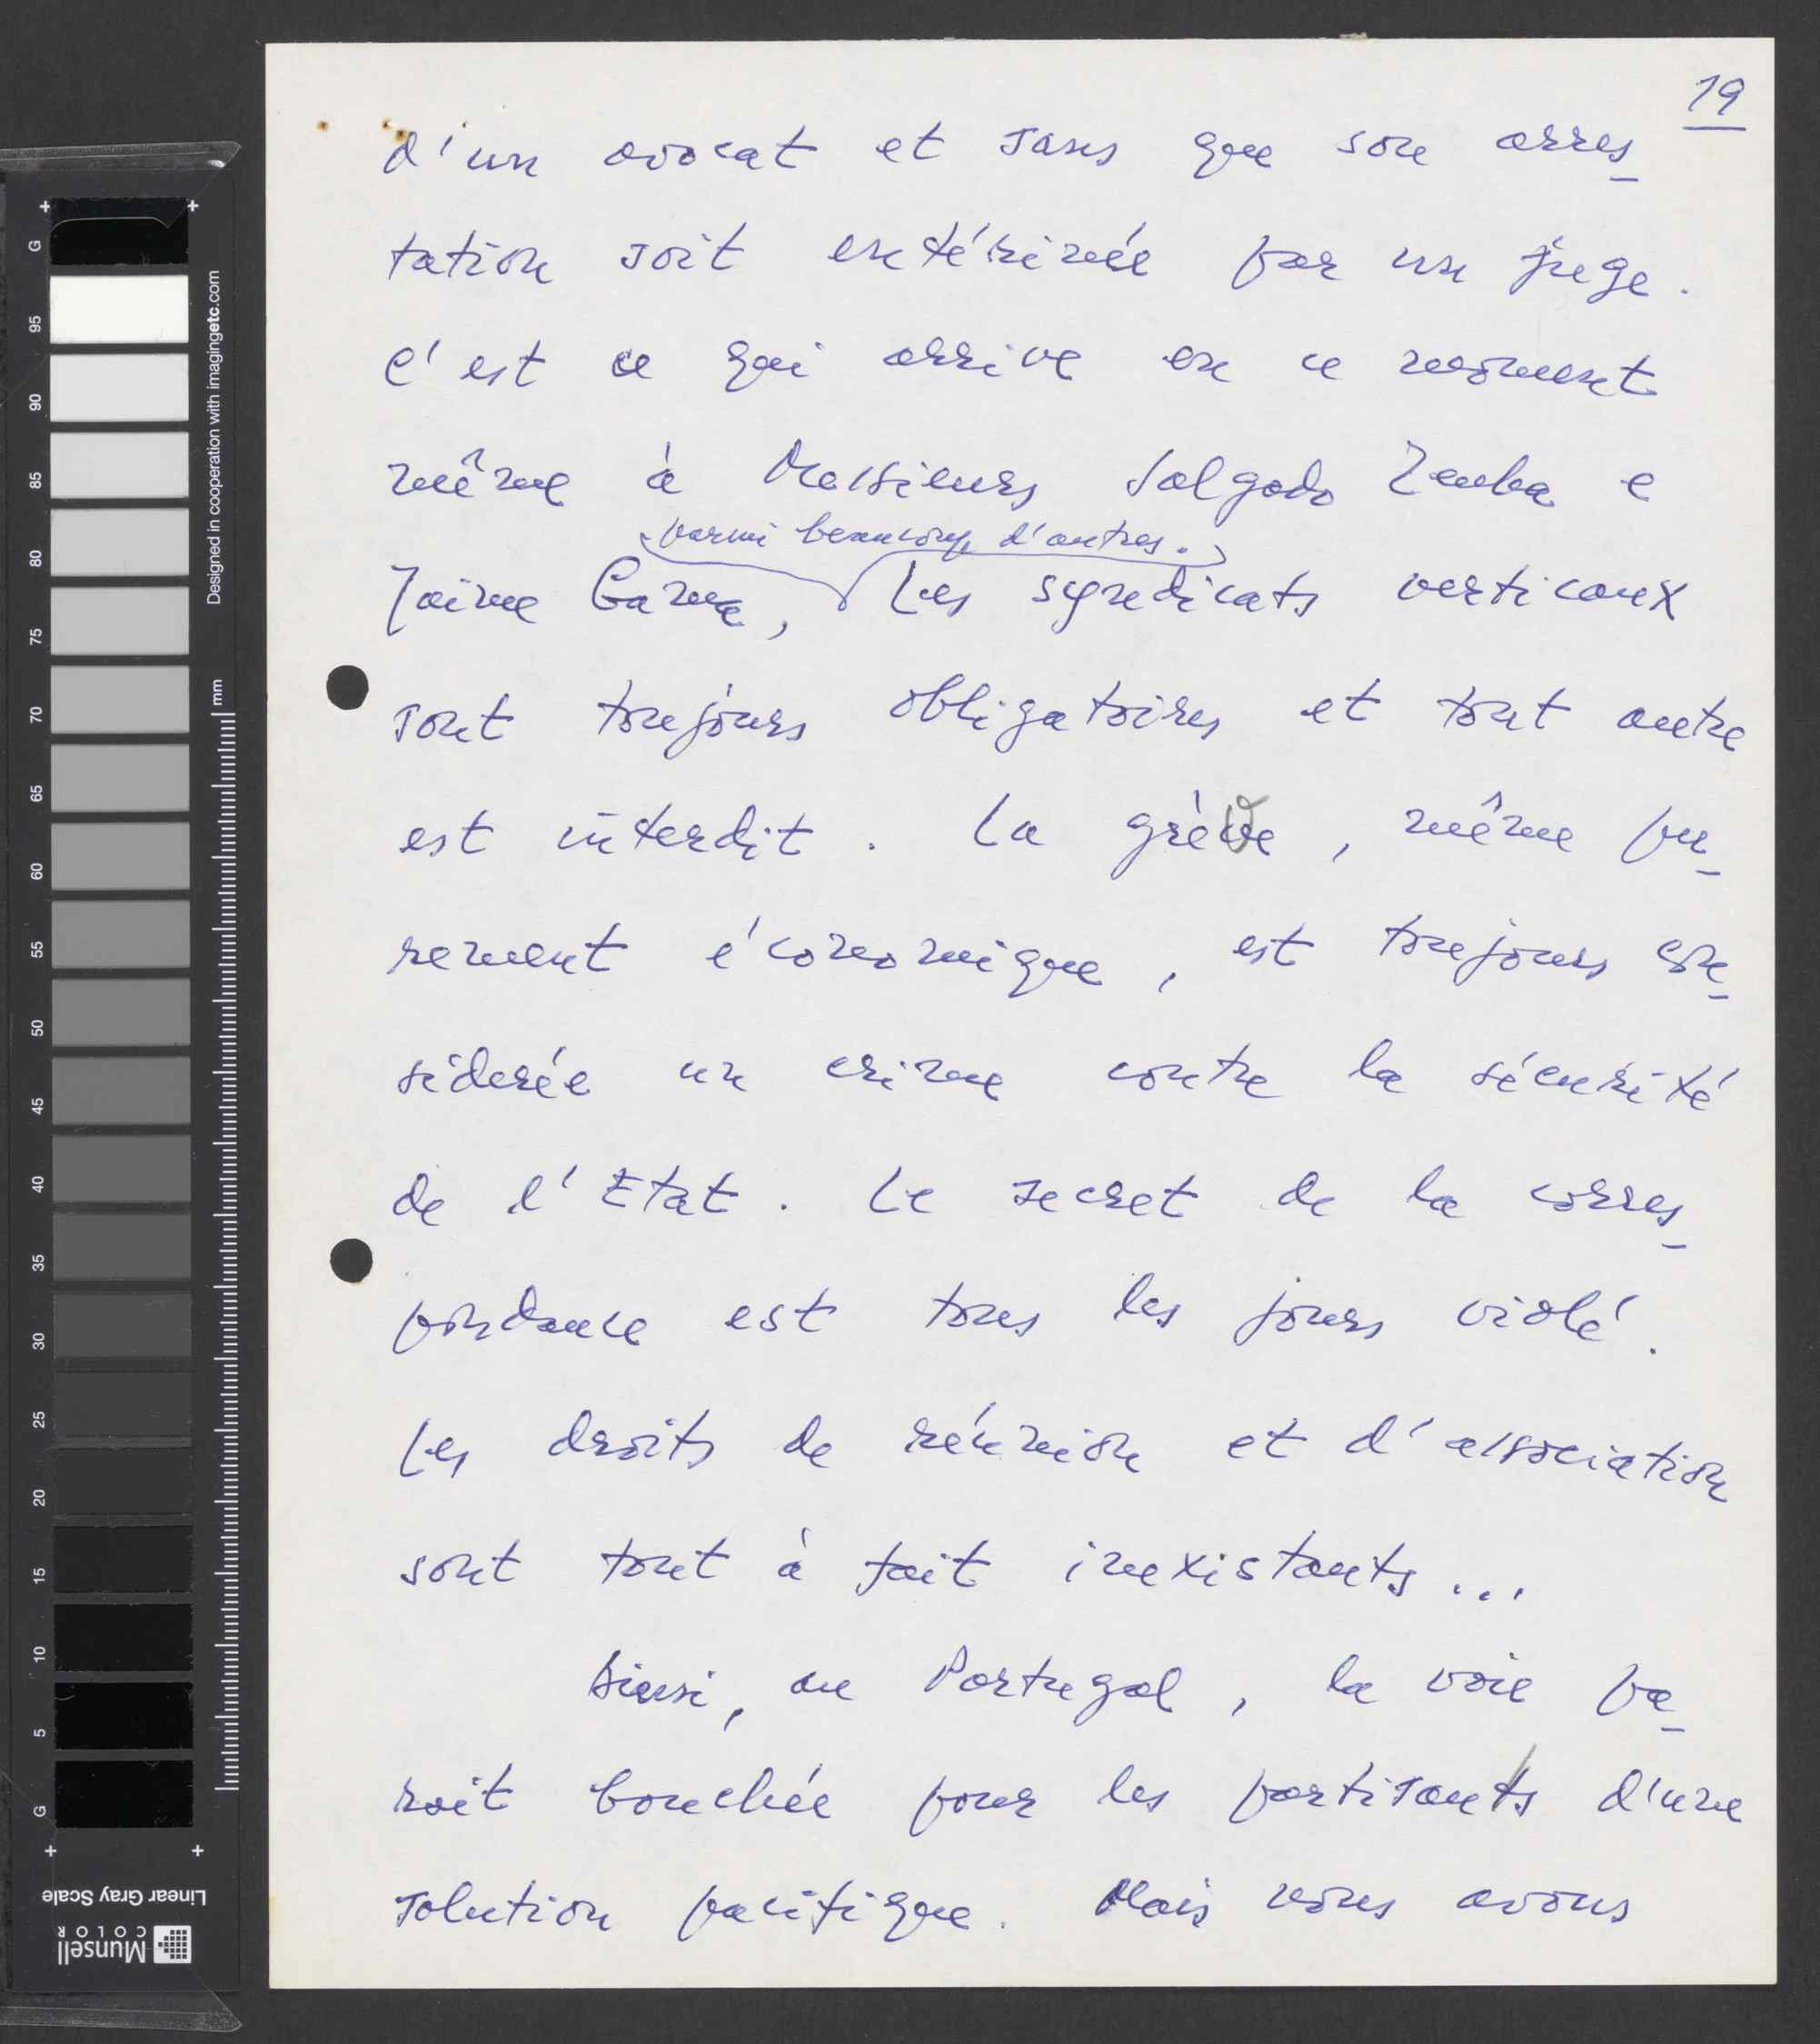 19
d'un avocat et sans que son arres-
tation soit entérinée par un juge.
C'est ce qui arrive en ce moment
même à Messieurs Salgado Zenha e
parmi beaucoup d'autres.
Jaime Gama, Les syndicats verticaux
sont toujours obligatoires et tout autre
est interdit. La grève, même pu-
rement économique, est toujours con-
siderée un crime contre la sécurité
de l'Etat. Le secret de la corres-
pondance est tous les jours violé.
Les droits de réunion et d'association
sont tout à fait inexistants...
Ainsi, au Portugal, la voie pa-
rait bouchée pour les partisants d'une
solution pacifique. Mais nous avons
G
95
90
85
80
75
70
65
60
55
50
45
40
35
30
25
20
15
10
5
G
Designed in cooperation with imagingetc.com
mm
Linear Gray Scale
Munsell
COLOR